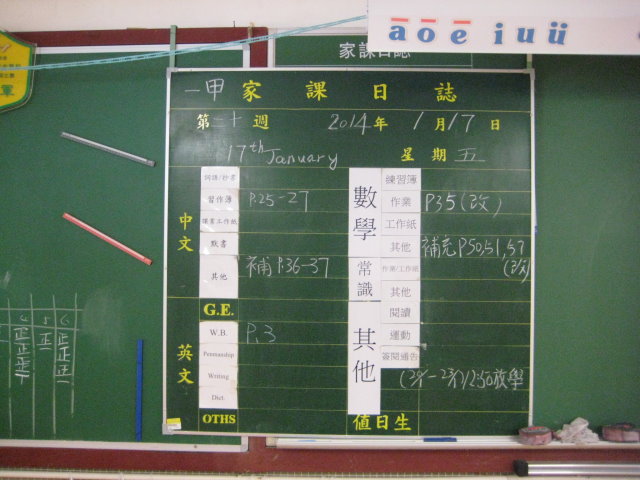 ā ō ē i u ü
家課日誌
一甲 家課日誌
第二十週 2014年 1月17日
17th January 星期五
中文
詞語/抄書
習作簿 P.25-27
課業工作紙
默書
其他 補 P.36-37
G.E.
英文
W.B. P.3
Penmanship
Writing
Dict.
OTHS
數學
練習簿
作業 P35(改)
工作紙
其他 補充 P50,51,57
(改)
常識
作業/工作紙
其他
其他
閱讀
運動
簽閱通告
12:50放學
值日生
4 5 6
正 正 正
正 一 正
正 正